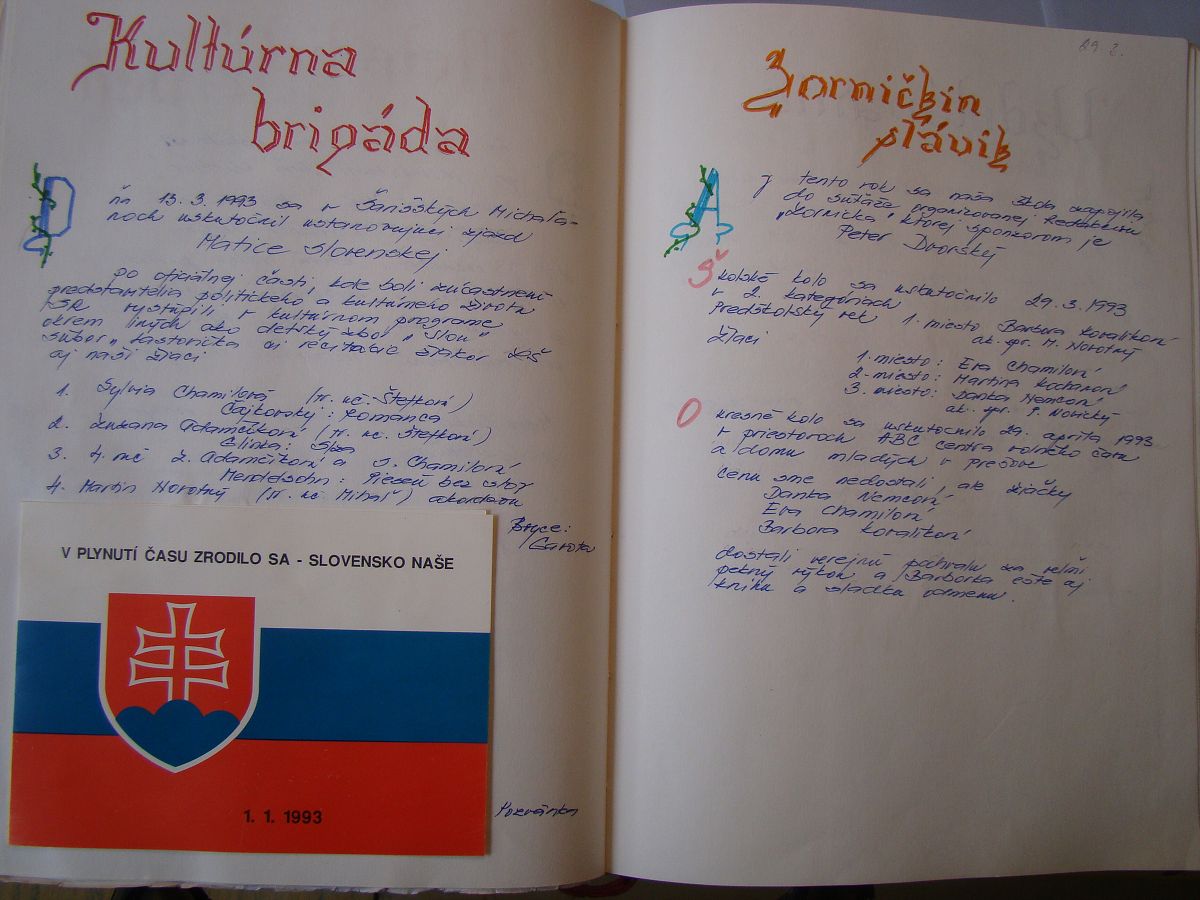 Kultúrna
brigáda
Dňa 13. 3. 1993 sa v Šarišských Michaľa-
noch uskutočnil ustanovujúci zjazd
Matice slovenskej
Po oficiálnej časti, kde boli zúčastnení
predstavitelia politického a kultúrneho života
SR vystúpili v kultúrnom programe
okrem iných ako detský súbor
súbor
aj naši žiaci
1. Sylvia Chamilová (tr. uč. Štefková)
Čajkovský: Romanca
2. Zuzana Adamčíková (tr. uč. Štefková)
Glinka:
3. 4. ruč. Z. Adamčíková a S. Chamilová
Mendelsohn: Pieseň bez slov
4. Martin Novotný (tr. uč. Mihaľ) akordeón
Bryce:
Gavota
V PLYNUTÍ ČASU ZRODILO SA - SLOVENSKO NAŠE
1. 1. 1993
Pozvánka
Zorničkin
slávik
Aj tento rok sa naša škola zapojila
do súťaže organizovanej Redakciou
„Zornička" ktorej sponzorom je
Peter Dvorský
Školské kolo sa uskutočnilo 29. 3. 1993
v 2. kategóriách
Predškolský vek 1. miesto Barbora Kovalíková
ak. spr. M. Novotný
Žiaci
1. miesto: Eva Chamilová
2. miesto: Martina
3. miesto: Danka Nemcová
ak. spr. P. Novický
Okresné kolo sa uskutočnilo 29. apríla 1993
v priestoroch ABC centra voľného času
a domu mladých v Prešove
cenu sme nedostali, ale žiačky
Danka Nemcová
Eva Chamilová
Barbora Kovalíková
dostali verejnú pochvalu za veľmi
pekný výkon a Barborka ešte aj
knihu a sladkú odmenu.